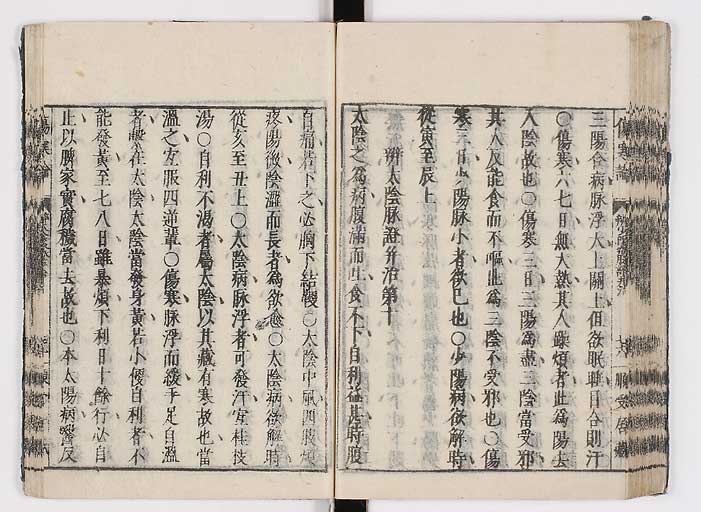 三陽合病脉浮大上關上但欲眠睡目合則汗
〇傷寒六七日無大熱其人躁煩者此爲陽去
入陰故也〇傷寒三日三陽爲盡三陰當受邪
其人反能食而不嘔此爲三陰不受邪也〇傷
寒三日少陽脉小者欲已也〇少陽病欲解時
從寅至辰上
辨太陰脉證并治第十
太陰之爲病腹滿而吐食不下自利益甚時腹
自痛若下之必胸下結鞕〇太陰中風四肢煩
疼陽微陰濇而長者爲欲愈〇太陰病欲解時
從亥至丑上〇太陰病脉浮者可發汗宜桂枝
湯〇自利不渴者屬太陰以其藏有寒故也當
溫之宜服四逆輩〇傷寒脉浮而緩手足自溫
者繫在太陰太陰當發身黃若小便自利者不
能發黃至七八日雖暴煩下利日十餘行必自
止以脾家實腐穢當去故也〇本太陽病醫反
傷寒論